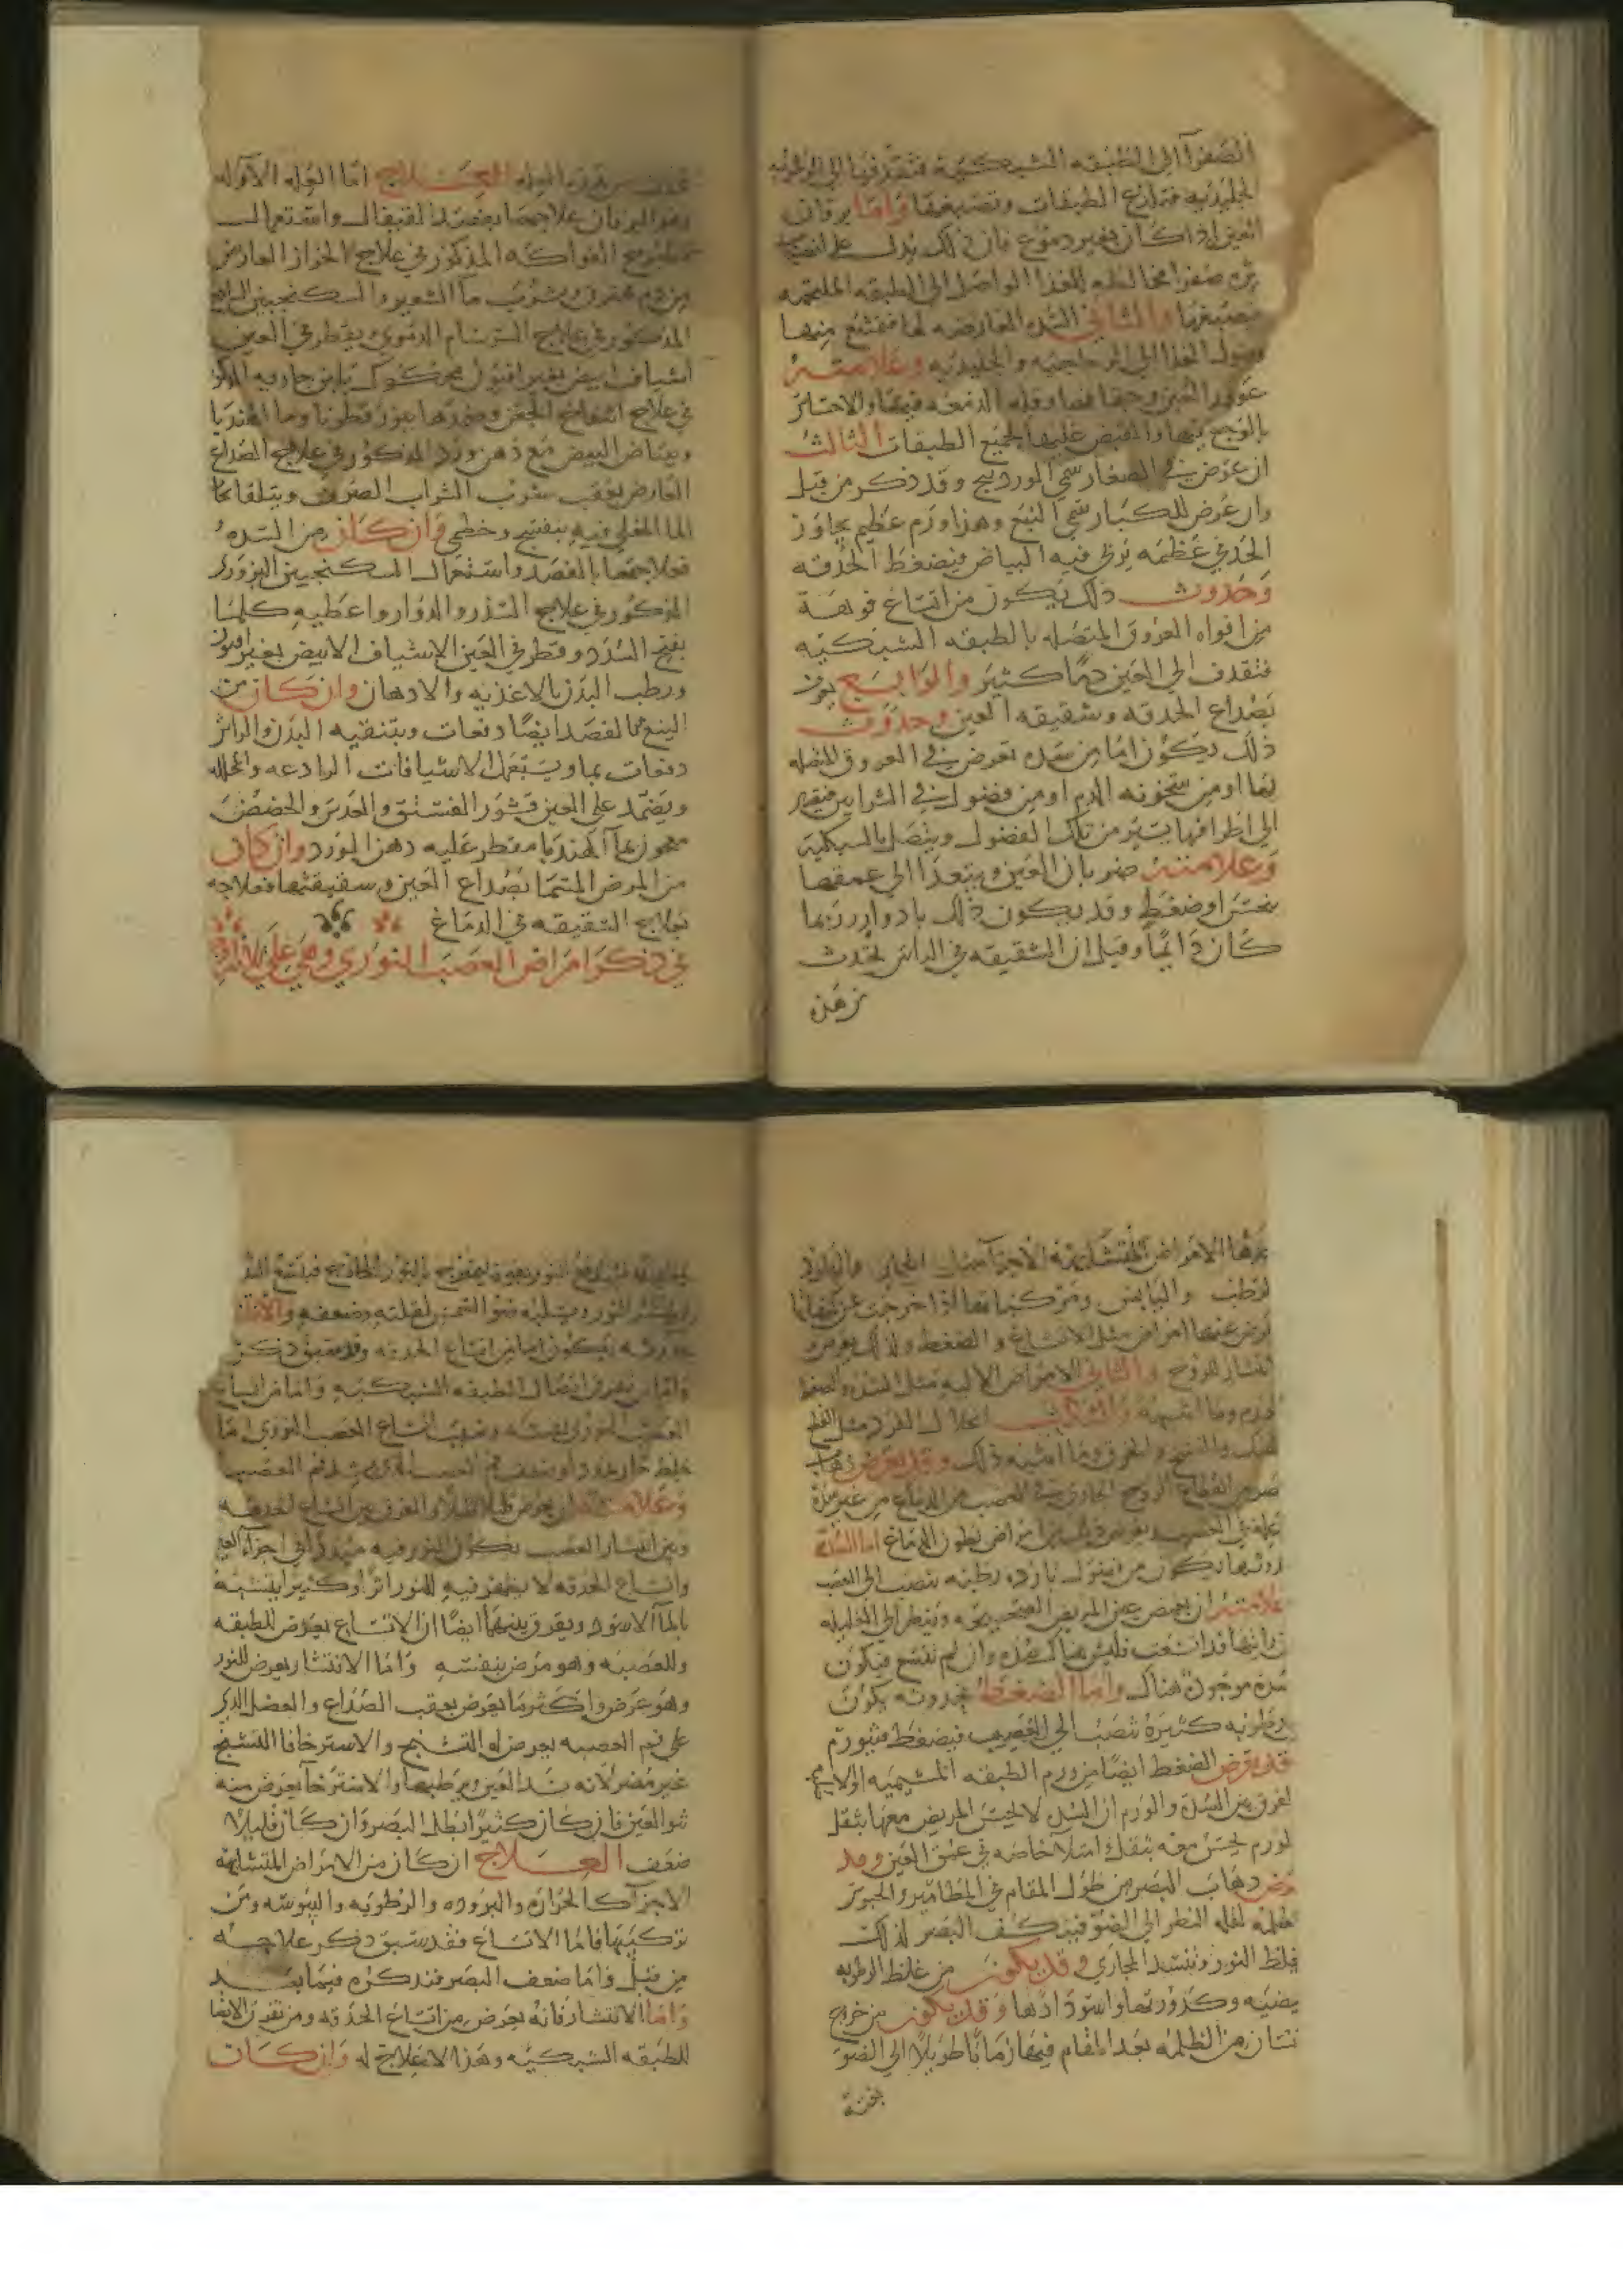 الصفرا الى الطبقه الشبكية فتقذفها الى الرطوبه
الجليديه فتلذع الطبقات وتصبغها واما يرقان
العين اذا كان بغير دموع فان ذلك يدل على
مره صفرا مخالطه للغذا الواصل الى الطبقه الملتحمه
فتصبغها والثاني السده العارضه لها فتمتنع منها
وصول الغذا الى الزجاجيه والجليديه وعلامته
غوور العين وجفافها وقله الدمعه فيها والاحساس
بالوجع فيها والقبض عليها لجميع الطبقات الثالث
ان عرض في الصغار سمي الوردينج وقد ذكر من قبل
وان عرض للكبار سمي النبع وهذا ورم عظيم يجاوز
الحد في عظمه يربي فيه البياض فيضغط الحدقه
وحدوث ذلك يكون من اتساع فوهة
من افواه العروق المتصله بالطبقه الشبكيه
فتقذف الى العين دما كثير والرابع يعرف
بصداع الحدقه وشقيقه العين وحدوث
ذلك يكون اما من سده تعرض في العروق المتصله
بها او من سخونه الدم او من فضول في الشرايين فيصير
الى اطرافها يسير من تلك الفضول ويتصل بالشبكية
وعلامته ضربان العين ويبتعد الى عمقها
بنخس او ضغط وقد يكون ذلك بادوار وربما
كان دائما وقيل ان الشقيقه في الراس تحدث
من هذه
العلاج اما العله الاوله
وهو اليرقان علاجها بفصد القيفال واستعمال
مطبوخ الفواكه المذكور في علاج الحزاز العارض
من دم محترق ويشرب ما الشعير والسكنجبين الساذج
المذكور في علاج السرسام الدموي ويقطر في العين
اشياف ابيض بغير افيون محكوك بلبن جاريه المذكور
في علاج انتفاخ الجفن وضمدها ببزر قطونا وما الهندبا
وبياض البيض مع دهن ورد المذكور في علاج الصداع
العارض بعقب شرب الشراب الصرف ويتلقا بخار
الما المغلي فيه بنفسج وخطمي وان كان من السده
فعلاجها بالفصد واستعمال السكنجبين البزوري
المذكور في علاج السدر والدوار واعطيه كلما
يفتح السدد وقطر في العين الاشياف الابيض بغير افيون
ورطب البدن بالاغذيه والادهان وان كان من
النبع فالفصد ايضا دفعات وبتنقيه البدن والراس
دفعات بما ويستعمل الاشيافات الرادعه والمحلله
ويضمد على العين قشور الفستق والعدس والحضض
معجون بما الهندبا مقطر عليه دهن الورد وان كان
من المرض المسما بصداع العين وشقيقتها فعلاجه
بعلاج الشقيقه في الدماغ
في ذكر امراض العصب النوري وهي على ثلاثه
الامراض المتشابهة الاجزا مثل الحار والبارد
الرطب واليابس ومركباتها اذا خرجت عن
عرض عنها امراض مثل الاتساع والضغط
انتشار الروح والثاني الامراض الاليه مثل السده والضغط
الورم وما اشبهه والثالث انحلال الفرد مثل
الهتك والفسخ والخرق وما اشبه ذلك وقد يعرض ذهاب
البصر من انقطاع الروح الجاري في العصب من الدماغ من غير سدة
امراض بطون الدماغ اما السدة
حدوثها يكون من فضول بارده رطبه تنصب الى العصب
علامته ان يغمض عين المريض الصحيحه وينظر الى العليله
فان رايتها قد اتسعت فليس هناك سده وان لم تتسع فيكون
سده موجودة هناك واما الضغط فحدوثه يكون
من رطوبه كثيرة تنصب الى العصب فيضغط فيتورم
وقد يعرض الضغط ايضا من ورم الطبقه المشيميه
الفرق بين السدة والورم ان السدد لا يحس المريض معها بثقل
الورم يحس معه بثقل وامتلا خاصه في عمق العين وقد
يعرض ذهاب البصر من طول المقام في المطامير والحبوس
المظلمه لقله النظر الى الضو فيتكثف البصر لذلك
فيغلظ النور وتنسد المجاري وقد يكون من غلظ الرطوبه
البيضيه وكدورتها واسودادها وقد يكون من خروج
الانسان من الظلمه بعد المقام فيها زمانا طويلا الى الضو
بغتة
النور ويسلبه ضو الشمس لقلته وضعفه والاتساع
حدوثه يكون اما من اتساع الحدقه وقد سبق ذكره
واما من تفرق اتصال الطبقه الشبكيه واما من اتساع
العصب النوري نفسه وسبب اتساع العصب النوري اما
خلط حار
وعلامته ان يعرض قليلا قليلا والفرق بين اتساع الحدقه
وبين انتشار العصب يكون النور فيه مبددا في اجزاء العين
واتساع الحدقه لا يظهر فيه للنور اثرا وكثيرا يتشبه
بالما الاسود ويفرق بينهما ايضا ان الاتساع يعرض للطبقه
وللعصبه وهو مرض بنفسه واما الانتشار يعرض للنور
وهو عرض واكثر ما يعرض بعقب الصداع والعضل الذي
على فم العصبه يعرض له التشنج والاسترخا فاما التشنج
غير مضر لانه يشد العين ويربطها والاسترخا يعرض منه
نتو العين فان كان كثيرا ابطل البصر وان كان قليلا
ضعف العلاج ان كان من الامراض المتشابهة
الاجزا كالحراره والبروده والرطوبه واليبوسه ومن
تركيبها فاما الاتساع فقد سبق ذكر علاجه
من قبل واما ضعف البصر فنذكره فيما بعد
واما الانتشار فانه يعرض من اتساع الحدقه ومن تفرق الاتصا
للطبقه الشبكيه وهذا لا علاج له وان كان